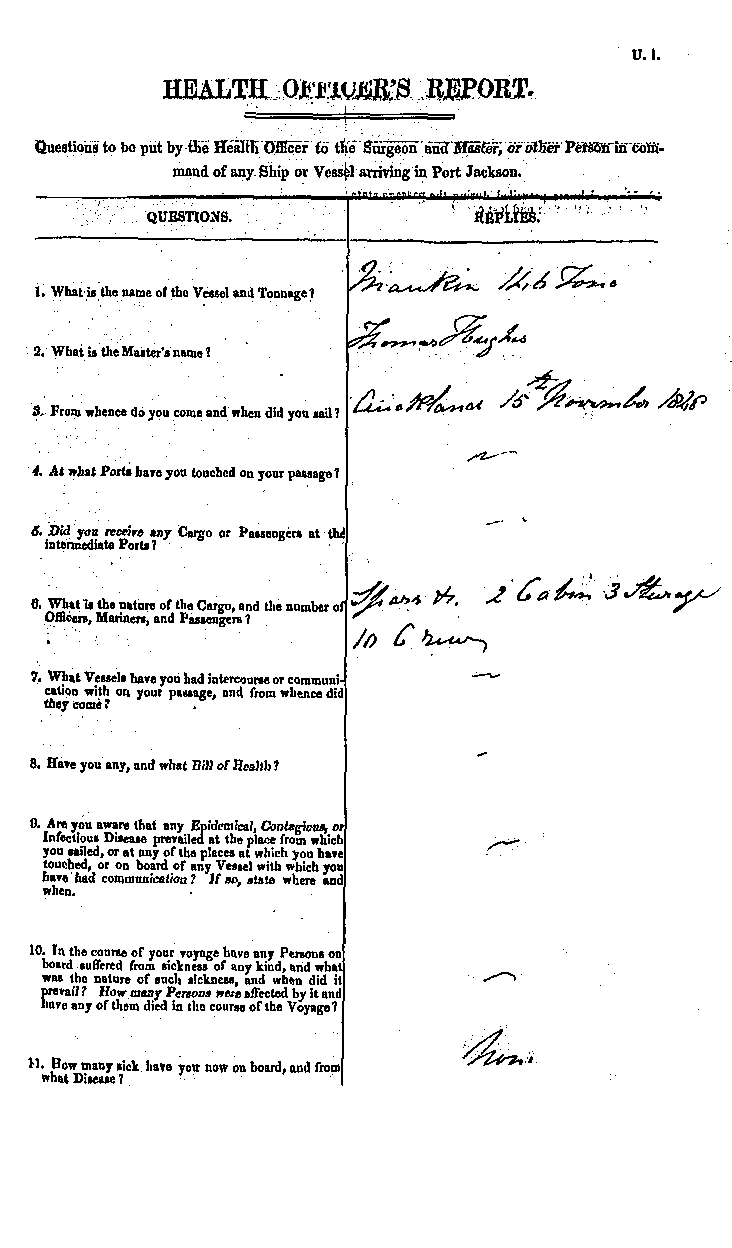 U. 1.
HEALTH OFFICER'S REPORT.
Questions to be put by the Health Officer to the Surgeon and Master, or other Person in com-
mand of any Ship or Vessel arriving in Port Jackson.
QUESTIONS.
REPLIES.
1. What is the name of the Vessel and Tonnage?
Maukin 146 Tons
2. What is the Master's name?
Thomas Hughes
3. From whence do you come and when did you sail?
Auckland 15th November
4. At what Ports have you touched on your passage?
5. Did you receive any Cargo or Passengers at the
intermediate Ports?
6. What is the nature of the Cargo, and the number of
Officers, Mariners, and Passengers?
Spars &. 2 Cabin 3 Sturage
10 Crew
7. What Vessels have you had intercourse or communi-
cation with on your passage, and from whence did
they come?
8. Have you any, and what Bill of Health?
9. Are you aware that any Epidemical, Contagious, or
Infectious Disease prevailed at the place from which
you sailed, or at any of the places at which you have
touched, or on board of any Vessel with which you
have had communication? If so, state where and
when.
10. In the course of your voyage have any Persons on
board suffered from sickness of any kind, and what
was the nature of such sickness, and when did it
prevail? How many Persons were affected by it and
have any of them died in the course of the Voyage?
11. How many sick have you now on board, and from
what Disease?
None